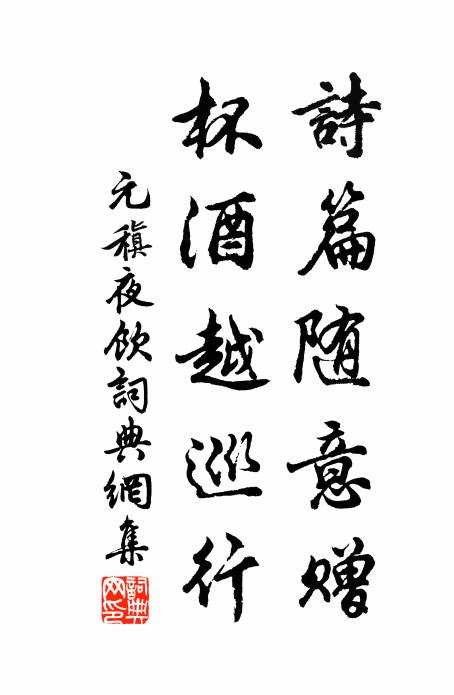 詩篇随意贈
杯酒越巡行
元稹夜飲詞典網集
詞典網印